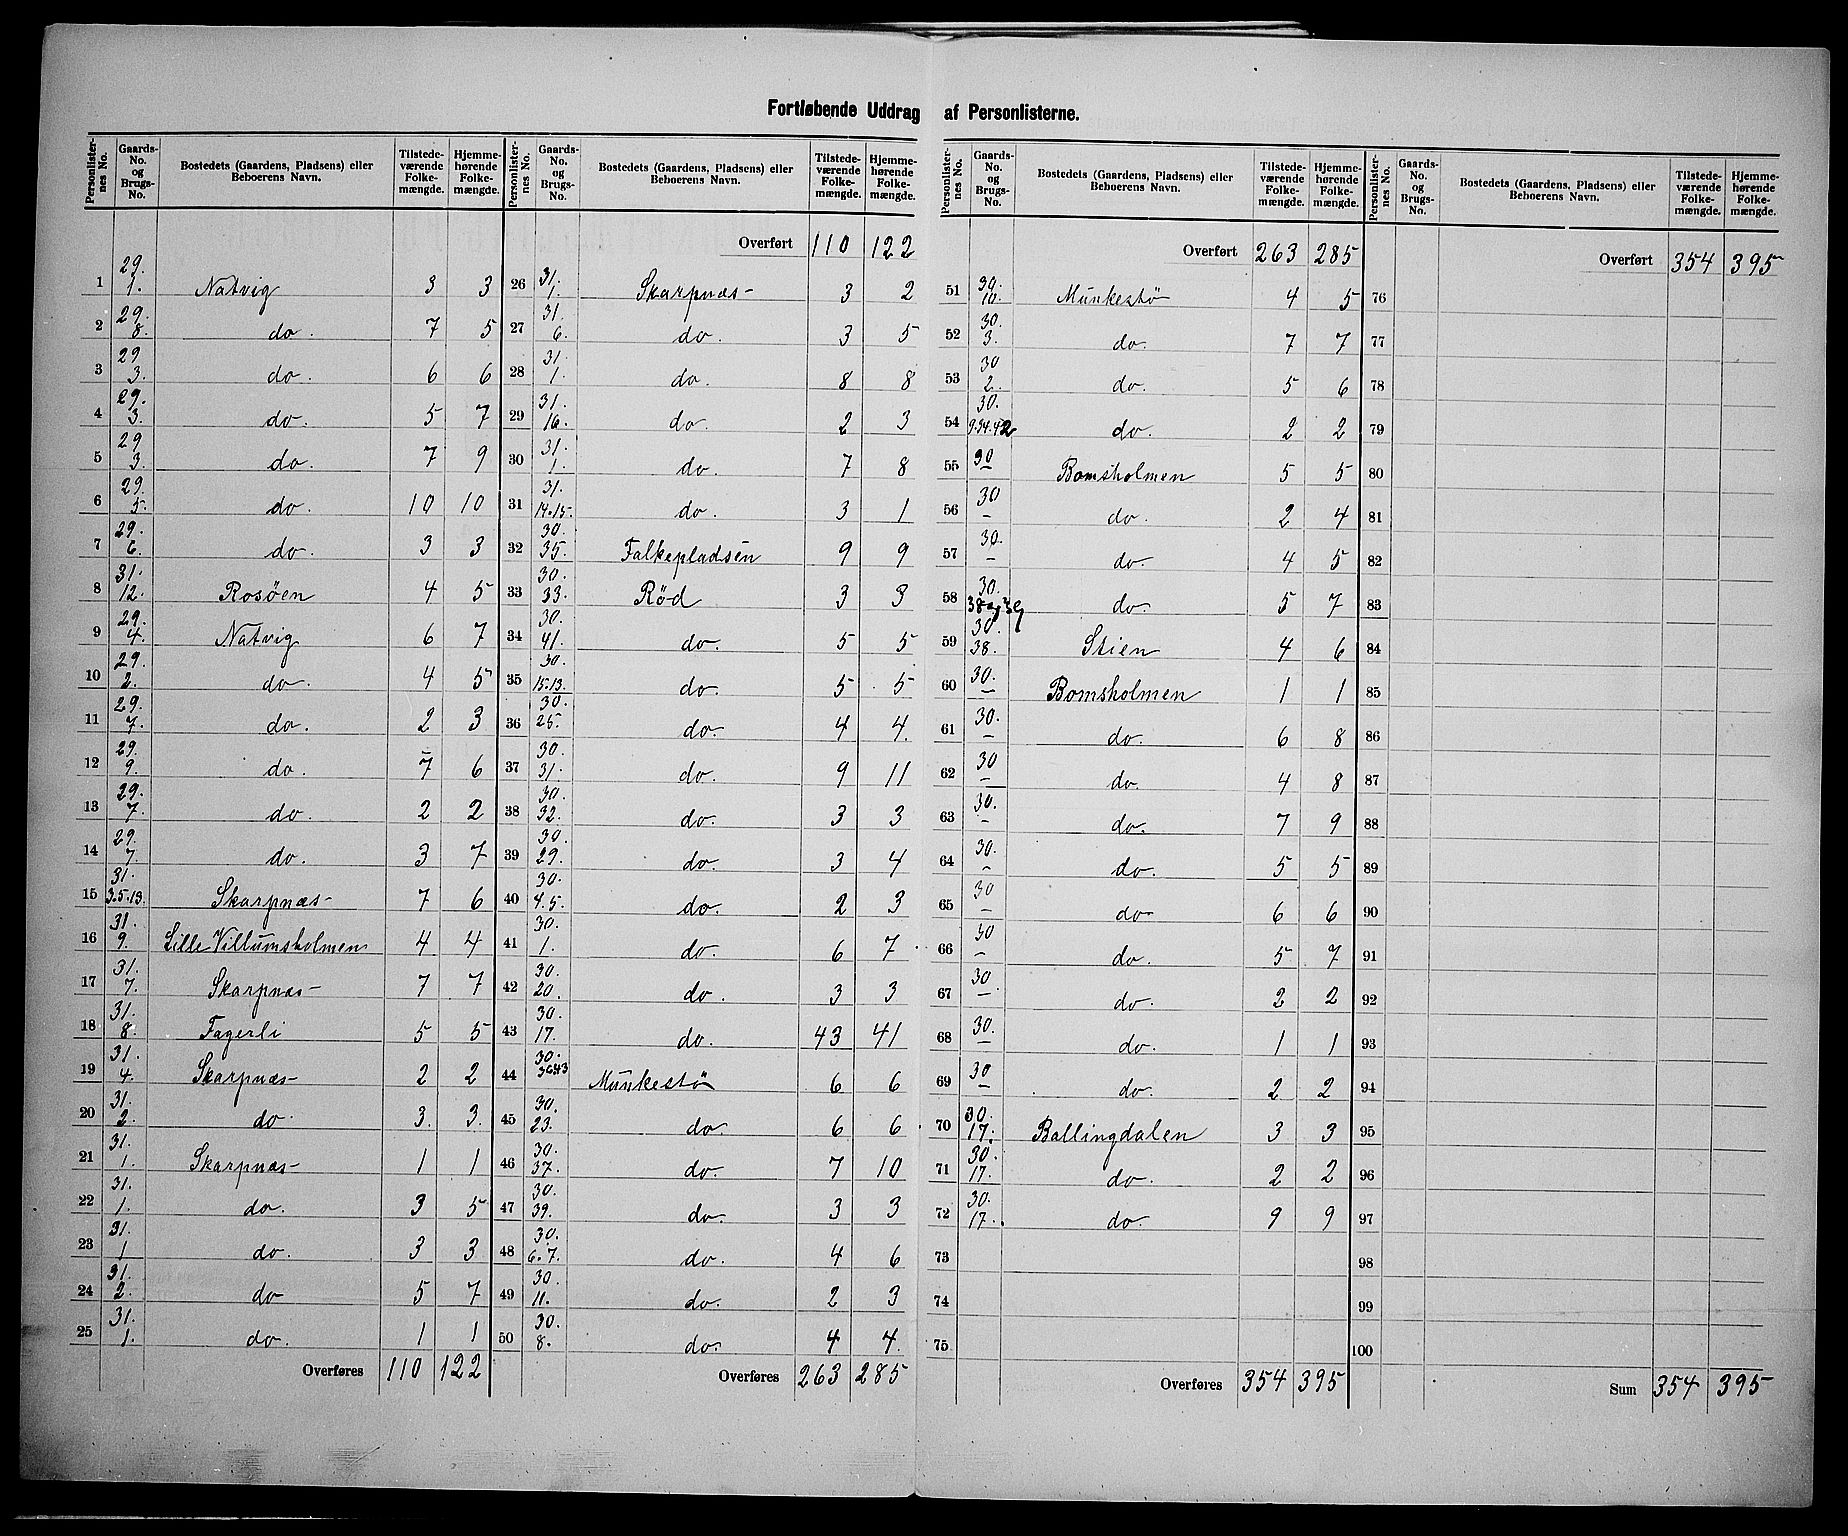 Fortløbende Uddrag af Personlisterne.
Personlisternes No. | Gaards-No. og Brugs-No. | Bostedets (Gaardens, Pladsens) eller Beboerens Navn. | Tilstedeværende Folkemængde. | Hjemmehørende Folkemængde.
1 | 29. 1. | Natvig | 3 | 3
2 | 29. 8. | do. | 7 | 5
3 | 29 3. | do. | 6 | 6
4 | 29. 3. | do. | 5 | 7
5 | 29 3. | do. | 7 | 9
6 | 29. 5. | do. | 10 | 10
7 | 29. 6. | do. | 3 | 3
8 | 31. 12. | Rosøen | 4 | 5
9 | 29. 4. | Natvig | 6 | 7
10 | 29. 2. | do. | 4 | 5
11 | 29. 7. | do. | 2 | 3
12 | 29. 9. | do. | 7 | 6
13 | 29. 7. | do. | 2 | 2
14 | 29. 7 | do. | 3 | 7
15 | 31. 3.5.13. | Skarpnæs | 7 | 6
16 | 31. 9. | Lille Villumsholmen | 4 | 4
17 | 31. 7. | Skarpnæs | 7 | 7
18 | 31. 8. | Fagerli | 5 | 5
19 | 31. 4. | Skarpnæs | 2 | 2
20 | 31. 2. | do. | 3. | 3.
21 | 31. 1. | Skarpnæs | 1 | 1
22 | 31. 1. | do. | 3 | 5
23 | 31. 1 | do. | 3 | 3
24 | 31. 2. | do | 5 | 7
25 | 31. 1. | do. | 1 | 1
Overføres 110 122
Personlisternes No. | Gaards-No. og Brugs-No. | Bostedets (Gaardens, Pladsens) eller Beboerens Navn. | Tilstedeværende Folkemængde. | Hjemmehørende Folkemængde.
Overført 110 122
26 | 31. 1. | Skarpnæs | 3 | 2
27 | 31. 6. | do. | 3 | 5
28 | 31. 1. | do. | 8 | 8
29 | 31. 16. | do. | 2 | 3
30 | 31. 1. | do. | 7 | 8
31 | 31. 14.15. | do. | 3 | 1
32 | 30. 35. | Falkepladsen | 9 | 9
33 | 30. 33. | Rød | 3 | 3
34 | 30. 41. | do. | 5 | 5
35 | 30. 15.13. | do. | 5 | 5
36 | 30. 25. | do. | 4 | 4.
37 | 30. 31. | do. | 9 | 11
38 | 30. 32. | do. | 3 | 3
39 | 30. 29. | do. | 3 | 4
40 | 30. 4.5. | do. | 2 | 3
41 | 30. 1. | do. | 6 | 7
42 | 30. 20. | do. | 3 | 3
43 | 30. 17. | do. | 43 | 41
44 | 30. | Munkestø | 6 | 6
45 | 30. 23. | do. | 6 | 6
46 | 30. 37. | do. | 7 | 10
47 | 30. 39. | do. | 3 | 3
48 | 30. 6.7. | do. | 4 | 6
49 | 30. 11. | do. | 2 | 3
50 | 30. 8. | do. | 4 | 4.
Overføres 263 285
Personlisternes No. | Gaards-No. og Brugs-No. | Bostedets (Gaardens, Pladsens) eller Beboerens Navn. | Tilstedeværende Folkemængde. | Hjemmehørende Folkemængde.
Overført 263 285
51 | 30. 10. | Munkestø | 4 | 5
52 | 30. 3. | do. | 7 | 7
53 | 30 2. | do. | 5 | 6
54 | 30. | do. | 2 | 2
55 | 30 – | Bomsholmen | 5 | 5
56 | 30 – | do. | 2 | 4
57 | 30. – | do. | 4 | 5
58 | 30. 38 og 39 | do. | 5 | 7
59 | 30. 38. | Stien | 4 | 6
60 | 30. – | Bomsholmen | 1 | 1
61 | 30. – | do. | 6 | 8
62 | 30 – | do. | 4 | 8
63 | 30. – | do. | 7 | 9
64 | 30. – | do. | 5 | 5
65 | 30 – | do. | 6 | 6
66 | 30 – | do. | 5 | 7
67 | 30 – | do. | 2 | 2
68 | 30. – | do. | 1 | 1
69 | 30 – | do. | 2 | 2
70 | 30. 17. | Ballingdalen | 3 | 3
71 | 30. 17. | do. | 2 | 2
72 | 30. 17. | do. | 9 | 9
73
74
75
Overføres 354 395
Personlisternes No. | Gaards-No. og Brugs-No. | Bostedets (Gaardens, Pladsens) eller Beboerens Navn. | Tilstedeværende Folkemængde. | Hjemmehørende Folkemængde.
Overført 354 395
76
77
78
79
80
81
82
83
84
85
86
87
88
89
90
91
92
93
94
95
96
97
98
99
100
Sum 354 395